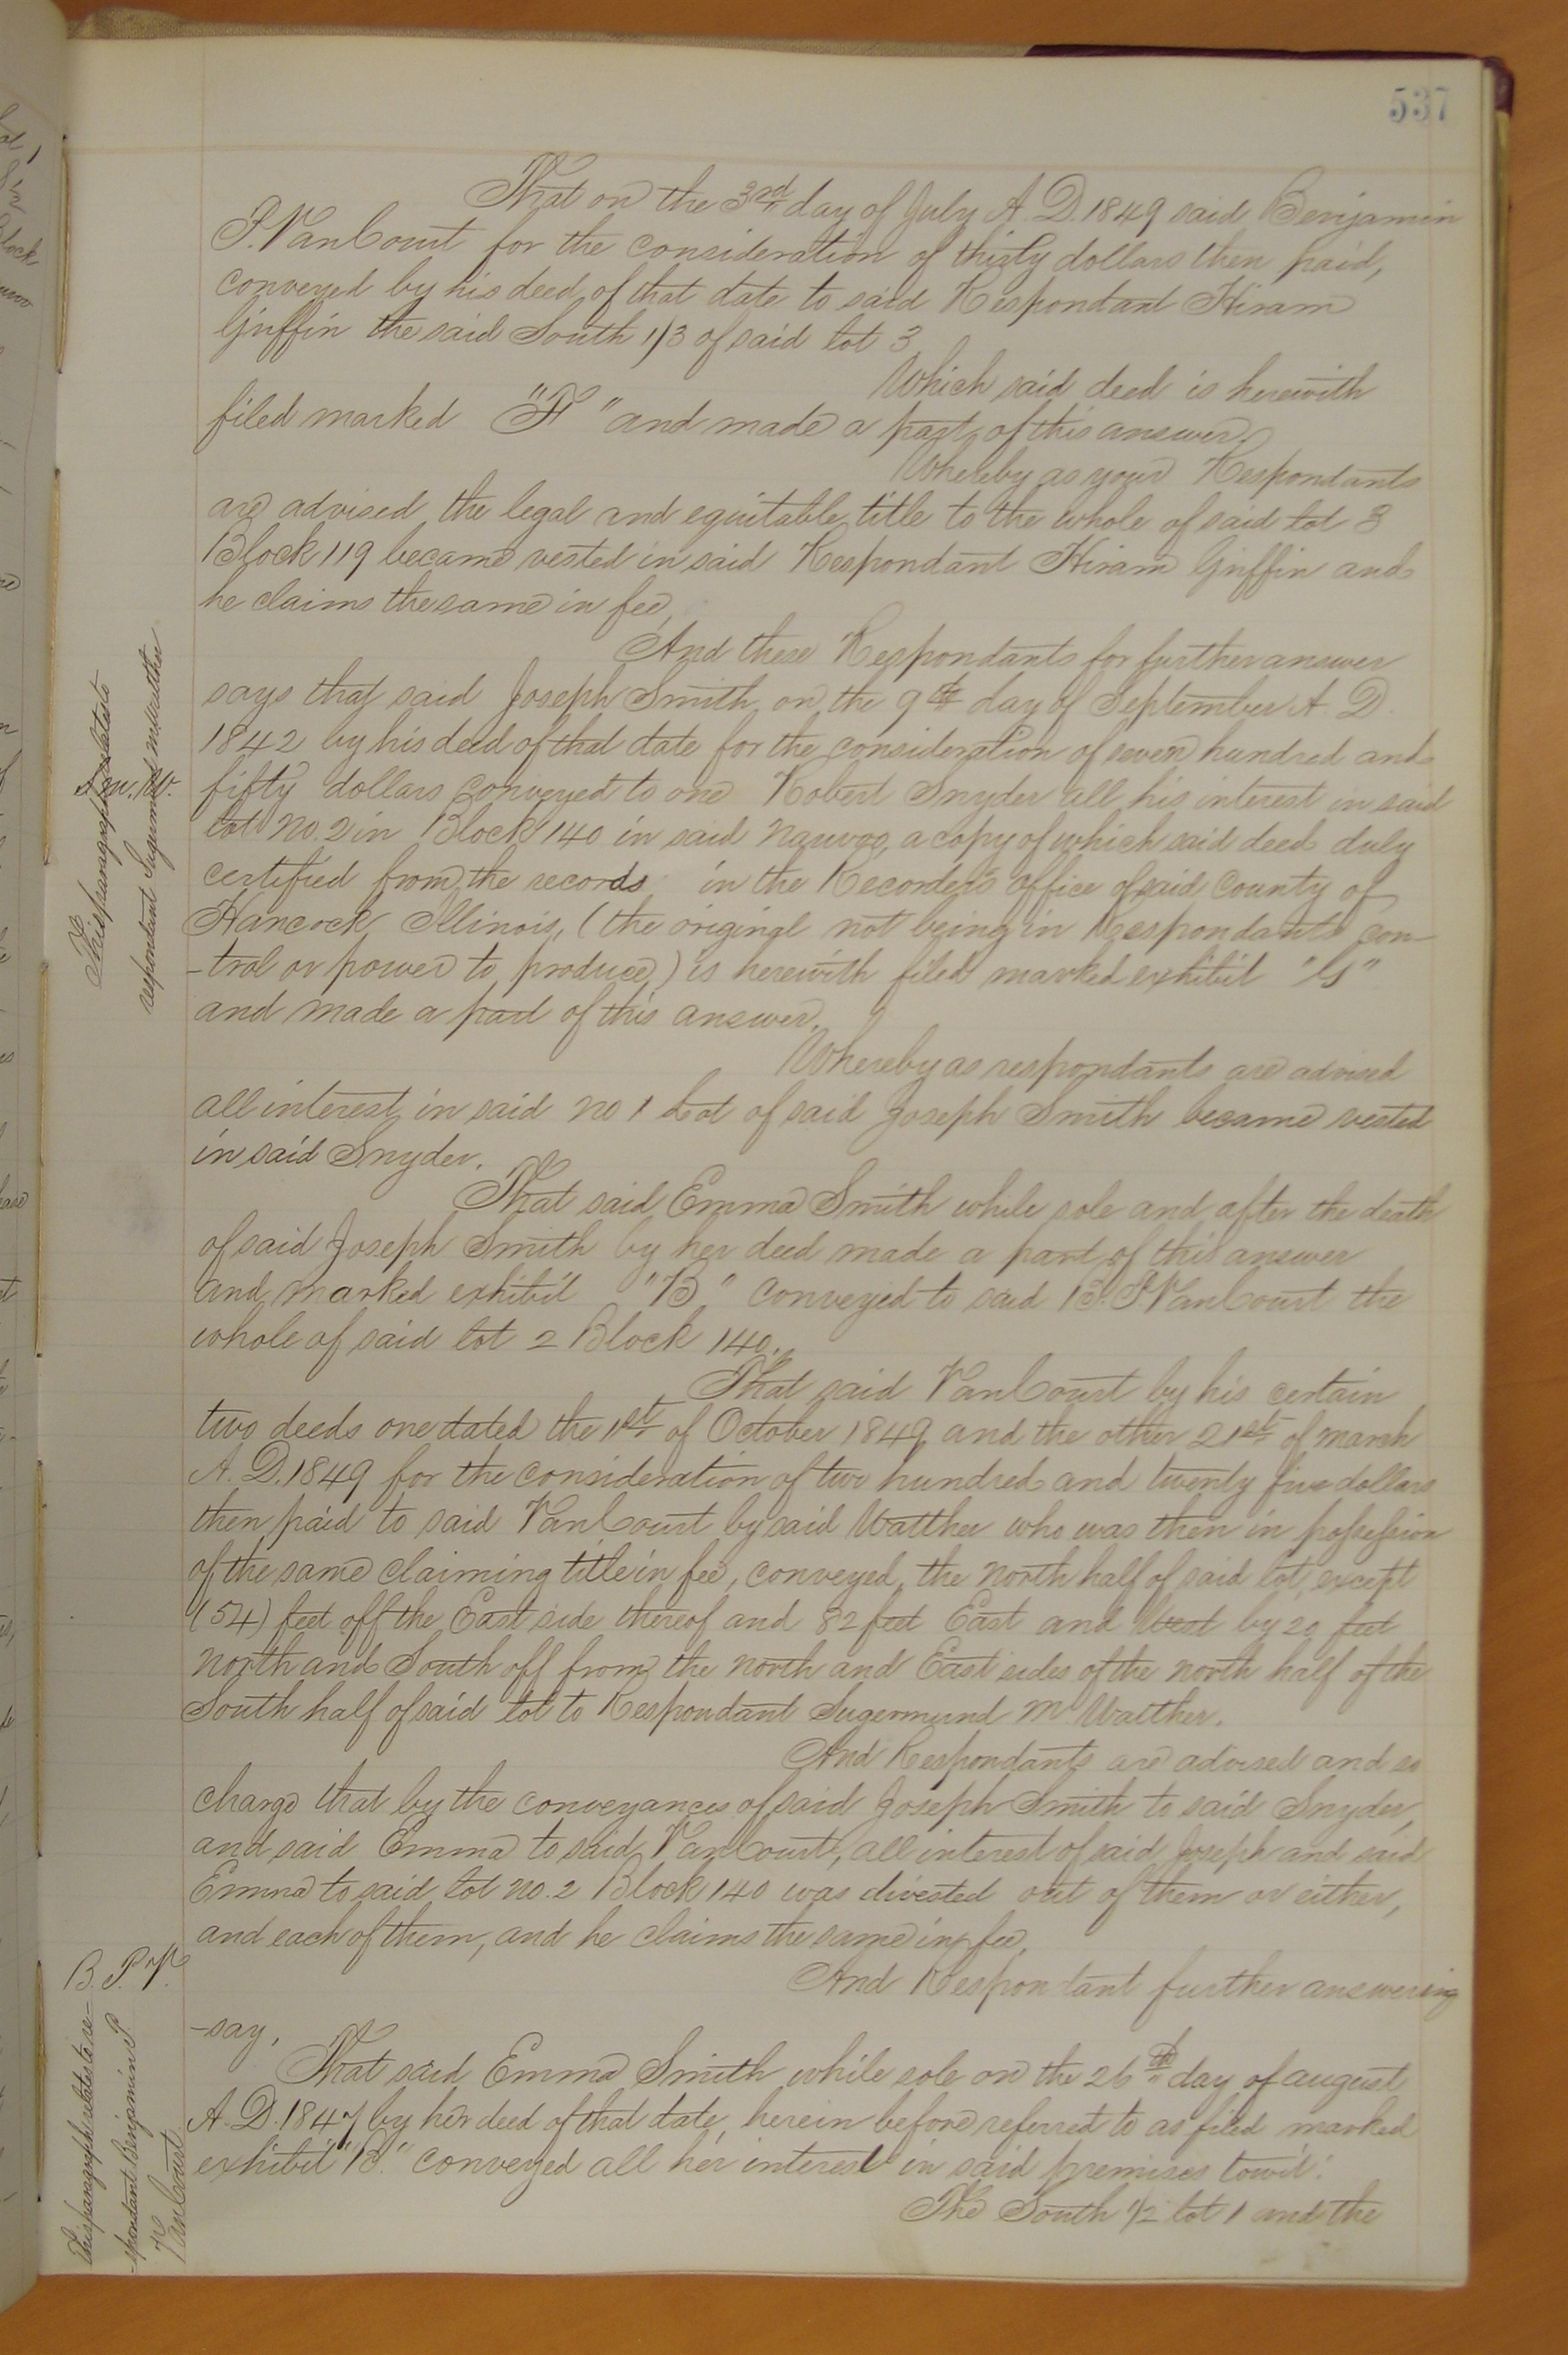 537
That on the 3rd day of July A. D. 1849 said Benjamin
P. VanCourt for the consideration of thirty dollars then paid,
conveyed by his deed of that date to said Respondant Hiram
Griffin the said South 1/3 of said lot 3
Which said deed is herewith
filed marked "F" and made a part of this answer.
Whereby as your Respondants
are advised the legal and equitable title to the whole of said lot 3
Block 119 became vested in said Respondant Hiram Griffin and
he claims the same in fee,
And these Respondants for further answer
says that said Joseph Smith on the 9th day of September A. D.
1842 by his deed of that date for the consideration of seven hundred and
fifty dollars conveyed to one Robert Snyder all his interest in said
lot No. 2 in Block 140 in said Nauvoo, a copy of which said deed duly
certified from the records in the Recorder's office of said County of
Hancock Illinois, (the original not being in Respondants con-
-trol or power to produce,) is herewith filed marked exhibit "G"
and made a part of this answer.
Whereby as respondants are advised
all interest in said no 1 Lot of said Joseph Smith became vested
in said Snyder.
That said Emma Smith while sole and after the death
of said Joseph Smith by her deed made a part of this answer
and marked exhibit "B" conveyed to said B. P. VanCourt the
whole of said lot 2 Block 140.
That said VanCourt by his certain
two deeds one dated the 1st of October 1849 and the other 21st of march
A. D. 1849 for the consideration of two hundred and twenty five dollars
then paid to said VanCourt by said Walther who was then in possession
of the same claiming title in fee, conveyed, the north half of said lot, except
(54) feet off the East side thereof and 82 feet East and West by 20 feet
north and South off from the north and East sides of the north half of the
South half of said lot to Respondant Sugermund M Walther.
And Respondants are advised and so
charge that by the conveyances of said Joseph Smith to said Snyder,
and said Emma to said VanCourt, all interest of said Joseph and said
Emma to said lot no. 2 Block 140 was divested out of them or either,
and each of them, and he claims the same in fee.
And Respondant further answering
-say,
That said Emma Smith while sole on the 26th day of august
A. D. 1847 by her deed of that date, herein before referred to as filed marked
exhibit "B." conveyed all her interest in said premises towit:
The South 1/2 lot 1 and the
S. M. W.
This paragraph relates to
respondent Sugermund M Walther
B. P. V.
This paragraph relates to re-
-spondant Benjamin P.
VanCourt